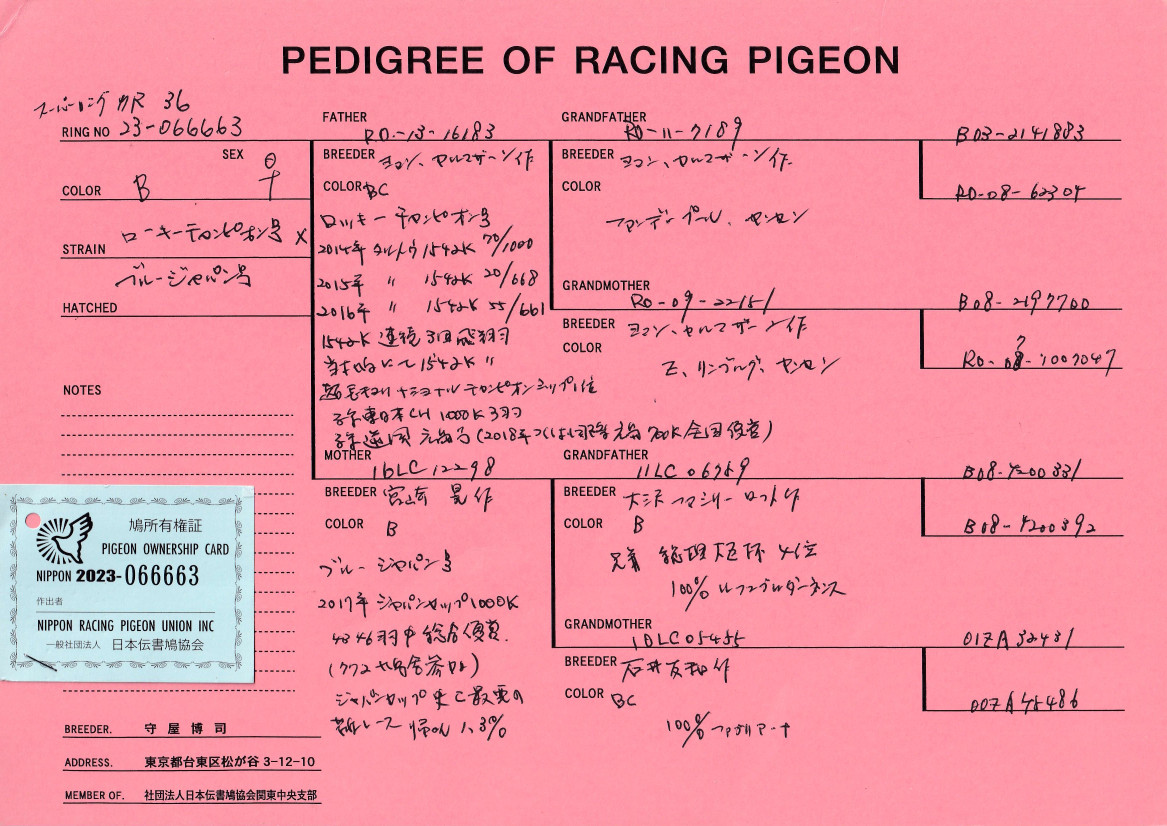 PEDIGREE OF RACING PIGEON
スーパーロング 36
RING NO 23-066663
SEX
COLOR B
STRAIN ロッキーチャンピオン号 ×
ブルージャパン号
HATCHED
NOTES
鳩所有権証
PIGEON OWNERSHIP CARD
NIPPON 2023-066663
作出者
NIPPON RACING PIGEON UNION INC
一般社団法人 日本伝書鳩協会
BREEDER. 守屋博司
ADDRESS. 東京都台東区松が谷 3-12-10
MEMBER OF. 社団法人日本伝書鳩協会関東中央支部
FATHER
RO-13-16183
BREEDER ヨアン、セルマザーン作
COLOR BC
ロッキーチャンピオン号
2014年 1542K 70/1000
2015年 〃 1542K 20/668
2016年 〃 1542K 55/661
1542K 連続3回飛翔
1542K 〃
ナショナルチャンピオンシップ1位
東日本CH 1000K 3羽
(2018年つくば国際 700K 全国優勝)
MOTHER
16LC12298
BREEDER 宮崎 晃 作
COLOR B
ブルージャパン号
2017年 ジャパンカップ1000K
4346羽中 総合優勝
(772鳩舎参加)
ジャパンカップ史上最悪の
レース 1.3%
GRANDFATHER
RO-11-7189
BREEDER ヨアン、セルマザーン作
COLOR
ファンデンブール、ヤンセン
GRANDMOTHER
RO-09-22151
BREEDER ヨアン、セルマザーン作
COLOR
E、リンブルグ、ヤンセン
GRANDFATHER
11LC06769
BREEDER 大沢 ファミリーロフト作
COLOR B
兄弟 総理大臣杯 4位
100%
GRANDMOTHER
10LC05455
BREEDER 石井友和作
COLOR BC
100%
B03-2141883
RO-08-62304
B08-2197700
B08-4200331
B08-4200392
01ZA32431
00ZA45486